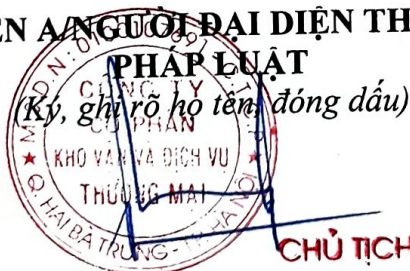 ÊN A/NGƯỜI ĐẠI DIỆN TH
PHÁP LUẬT
(Ký, ghi rõ họ tên, đóng dấu)
CÔNG TY
CỔ PHẦN
KHO VẬN VÀ DỊCH VỤ
THƯƠNG MẠI
Q. HAI BÀ TRƯNG - TP HÀ NỘI
CHỦ TỊCH